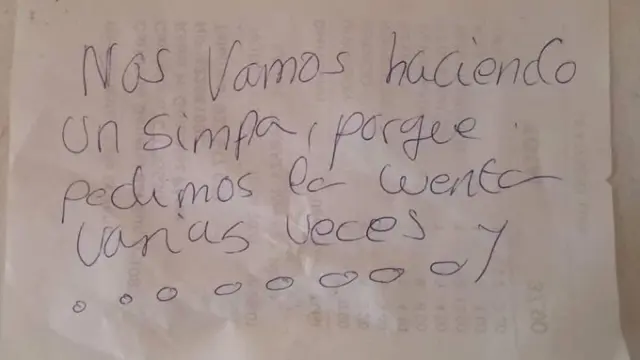 Nos Vamos haciendo
un simpa, porqee
pedimos la cuenta
varias veces y
. . . . . . . .